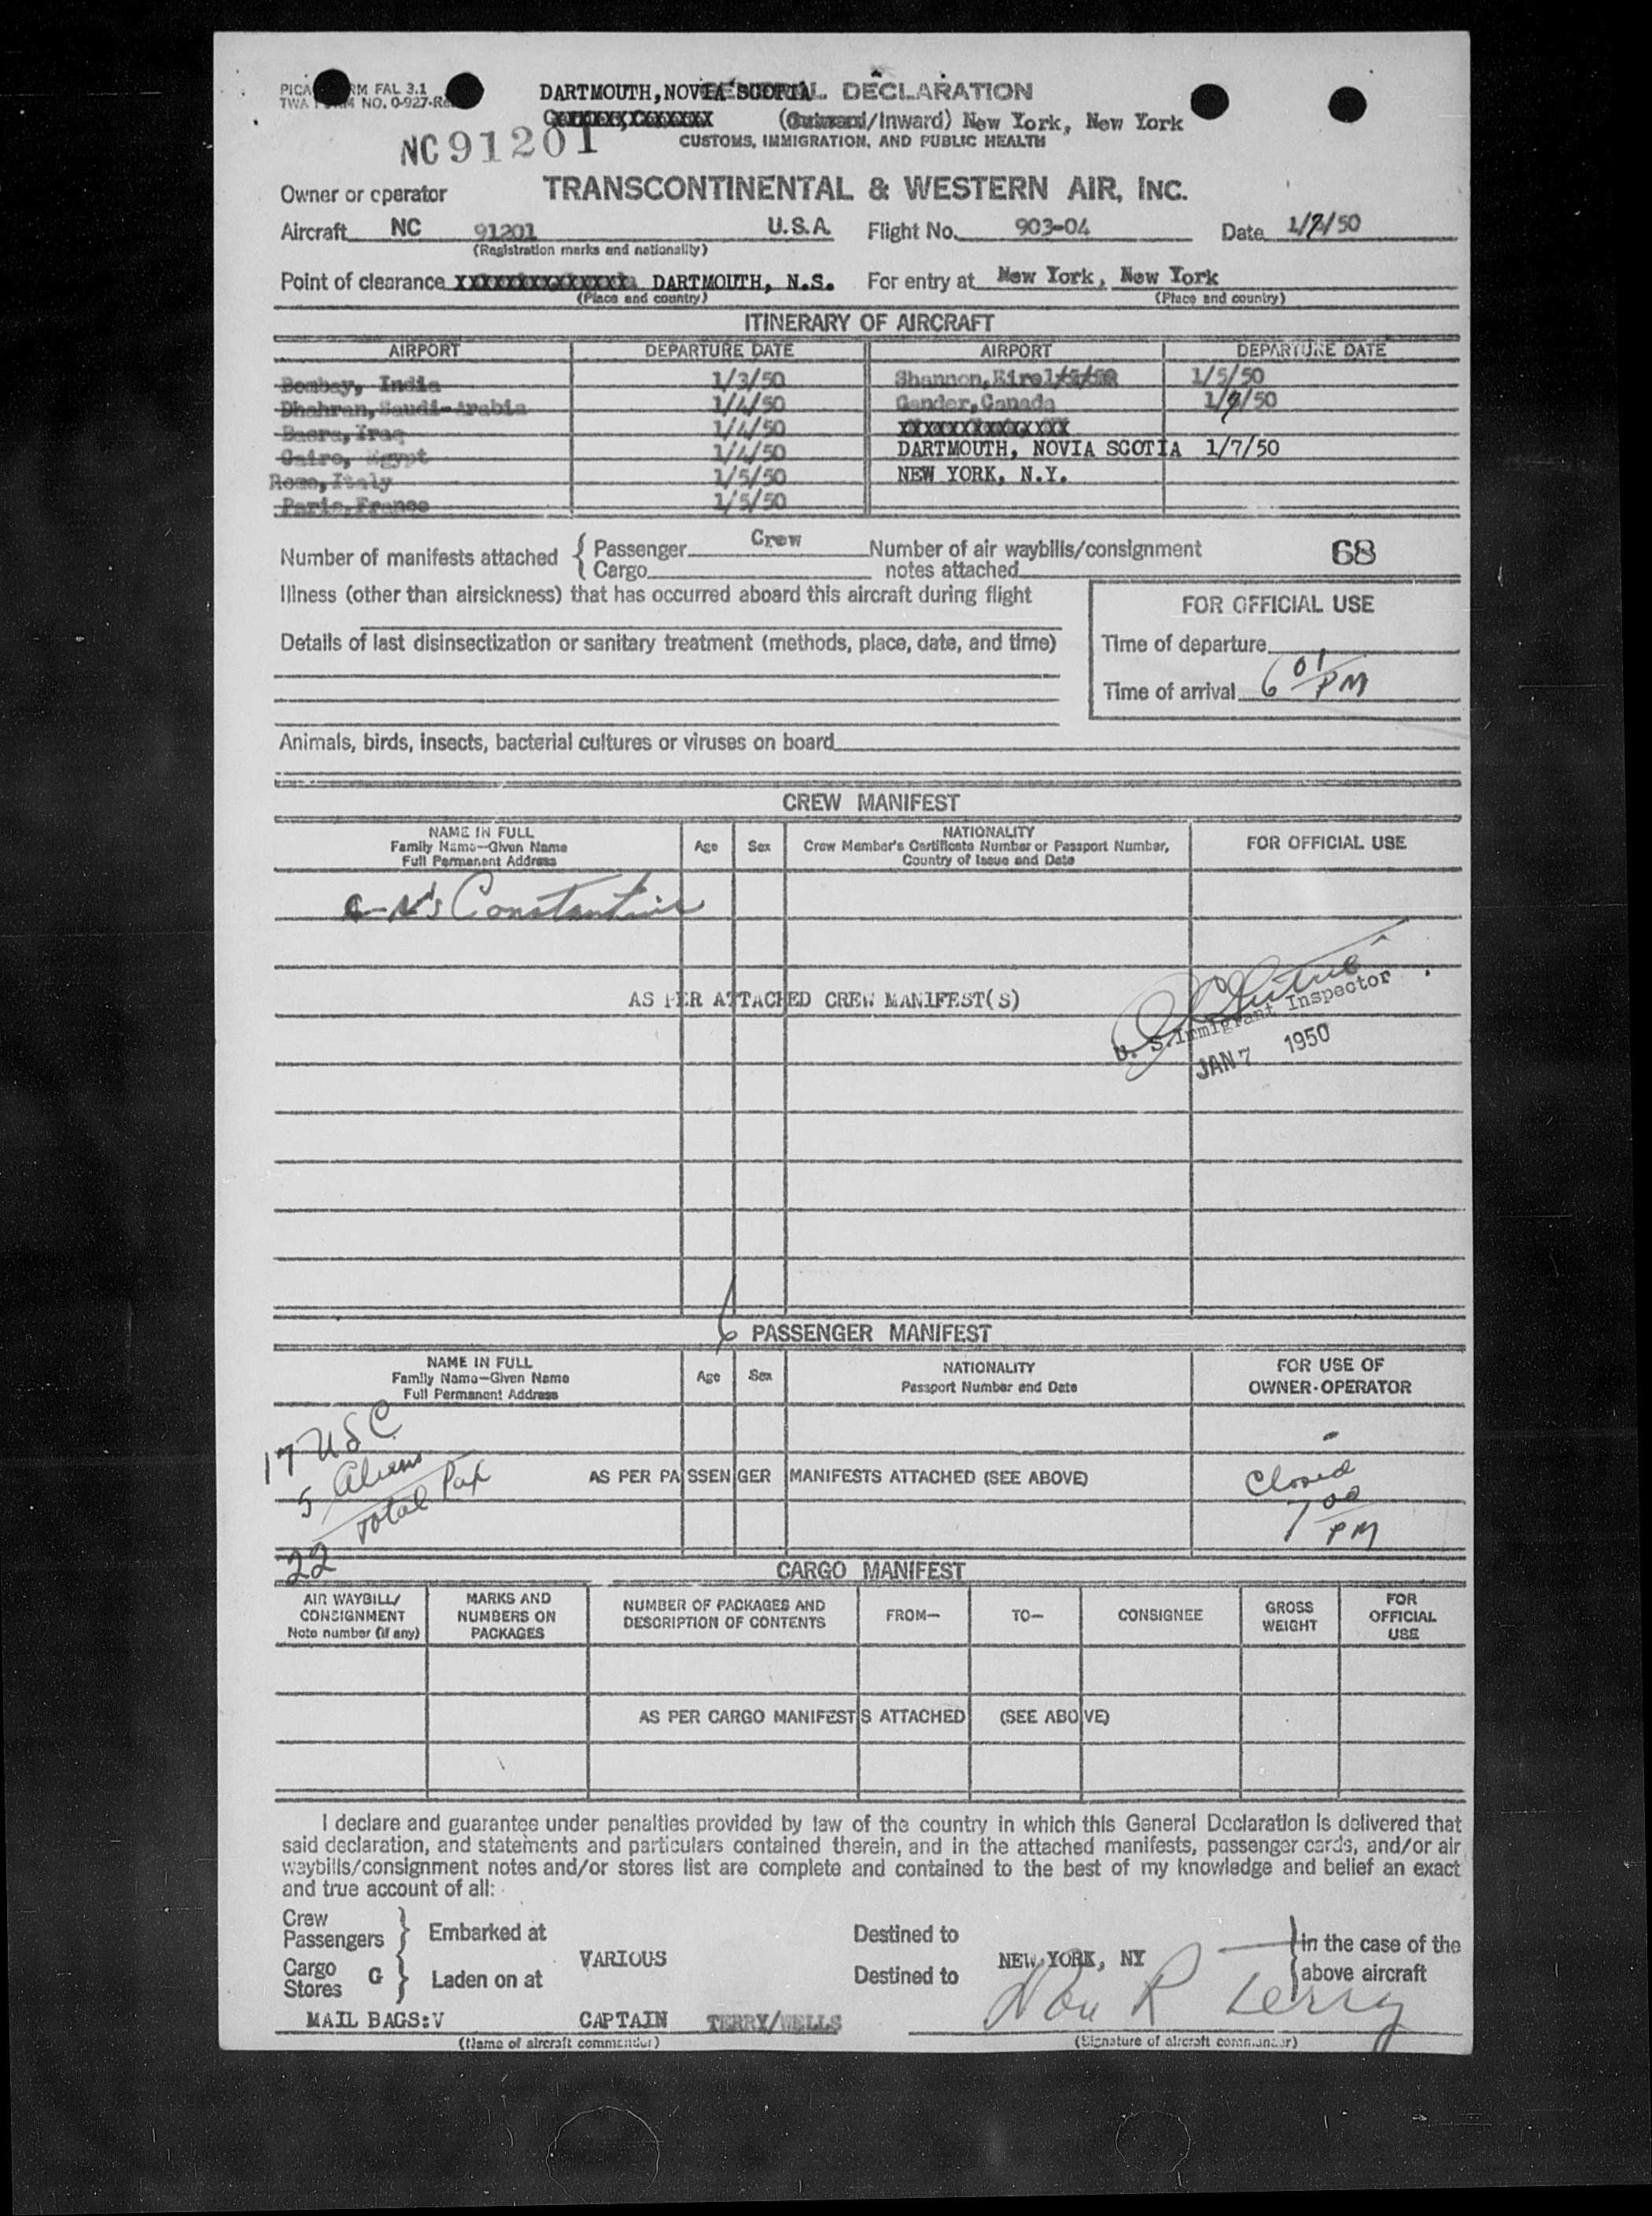 FORM FAL 3.1
TWA FORM NO. 0-927-Re
DARTMOUTH, NOVIA SCOTIA GENERAL DECLARATION
(Outward/Inward) New York, New York
CUSTOMS, IMMIGRATION, AND PUBLIC HEALTH
NC 91201
Owner or operator TRANSCONTINENTAL & WESTERN AIR, INC.
Aircraft NC 91201 U.S.A. Flight No. 903-04 Date 1/7/50
(Registration marks and nationality)
Point of clearance XXXXXXXXXXXXXX DARTMOUTH, N.S. For entry at New York, New York
(Place and country) (Place and country)
ITINERARY OF AIRCRAFT
AIRPORT DEPARTURE DATE AIRPORT DEPARTURE DATE
Bombay, India 1/3/50 Shannon, Eire 1/5/50
Dhahran, Saudi-Arabia 1/4/50 Gander, Canada 1/7/50
Basra, Iraq 1/4/50 XXXXXXXXXXXXXXX
Cairo, Egypt 1/4/50 DARTMOUTH, NOVIA SCOTIA 1/7/50
Rome, Italy 1/5/50 NEW YORK, N.Y.
Paris, France 1/5/50
Number of manifests attached { Passenger Crew Number of air waybills/consignment 68
Cargo notes attached
Illness (other than airsickness) that has occurred aboard this aircraft during flight
FOR OFFICIAL USE
Details of last disinsectization or sanitary treatment (methods, place, date, and time)
Time of departure
Time of arrival 6 01 PM
Animals, birds, insects, bacterial cultures or viruses on board
CREW MANIFEST
NAME IN FULL
Family Name—Given Name
Full Permanent Address
Age Sex
NATIONALITY
Crew Member's Certificate Number or Passport Number,
Country of Issue and Date
FOR OFFICIAL USE
Constantine
AS PER ATTACHED CREW MANIFEST(S)
U. S. Immigrant Inspector
JAN 7 1950
6
PASSENGER MANIFEST
NAME IN FULL
Family Name—Given Name
Full Permanent Address
Age Sex
NATIONALITY
Passport Number and Date
FOR USE OF
OWNER-OPERATOR
17 USC
5 Aliens
22 Total Pax
AS PER PASSENGER MANIFESTS ATTACHED (SEE ABOVE)
Closed
7 00 PM
CARGO MANIFEST
AIR WAYBILL/
CONSIGNMENT
Note number (if any)
MARKS AND
NUMBERS ON
PACKAGES
NUMBER OF PACKAGES AND
DESCRIPTION OF CONTENTS
FROM— TO— CONSIGNEE
GROSS
WEIGHT
FOR
OFFICIAL
USE
AS PER CARGO MANIFESTS ATTACHED (SEE ABOVE)
I declare and guarantee under penalties provided by law of the country in which this General Declaration is delivered that
said declaration, and statements and particulars contained therein, and in the attached manifests, passenger cards, and/or air
waybills/consignment notes and/or stores list are complete and contained to the best of my knowledge and belief an exact
and true account of all:
Crew
Passengers } Embarked at Destined to
VARIOUS NEW YORK, NY
Cargo
Stores G } Laden on at Destined to
} in the case of the
above aircraft
MAIL BAGS:V CAPTAIN TERRY/WELLS Don R Terry
(Name of aircraft commander) (Signature of aircraft commander)